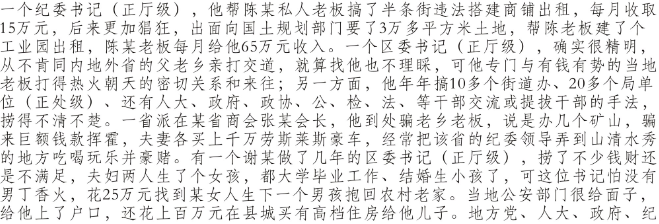 一个纪委书记（正厅级），他帮陈某私人老板搞了半条街违法搭建商铺出租，每月收取
15万元，后来更加猖狂，出面向国土规划部门要了3万多平方米土地，帮陈老板建了个
工业园出租，陈某老板每月给他65万元收入。一个区委书记（正厅级），确实很精明，
从不肯同内地外省的父老乡亲打交道，就算找他也不理睬，可他专门与有钱有势的当地
老板打得热火朝天的密切关系和来往；另一方面，他年年搞10多个街道办、20多个局单
位（正处级）、还有人大、政府、政协、公、检、法、等干部交流或提拔干部的手法，
捞得不清不楚。一省派在某省商会张某会长，他到处骗老乡老板，说是办几个矿山，骗
来巨额钱款挥霍，夫妻各买上千万劳斯莱斯豪车，经常把该省的纪委领导弄到山清水秀
的地方吃喝玩乐并豪赌。有一个谢某做了几年的区委书记（正厅级），捞了不少钱财还
是不满足，夫妇两人生了个女孩，都大学毕业工作、结婚生小孩了，可这位书记怕没有
男丁香火，花25万元找到某女人生下一个男孩抱回农村老家。当地公安部门很给面子，
给他上了户口，还花上百万元在县城买有高档住房给他儿子。地方党、人大、政府、纪